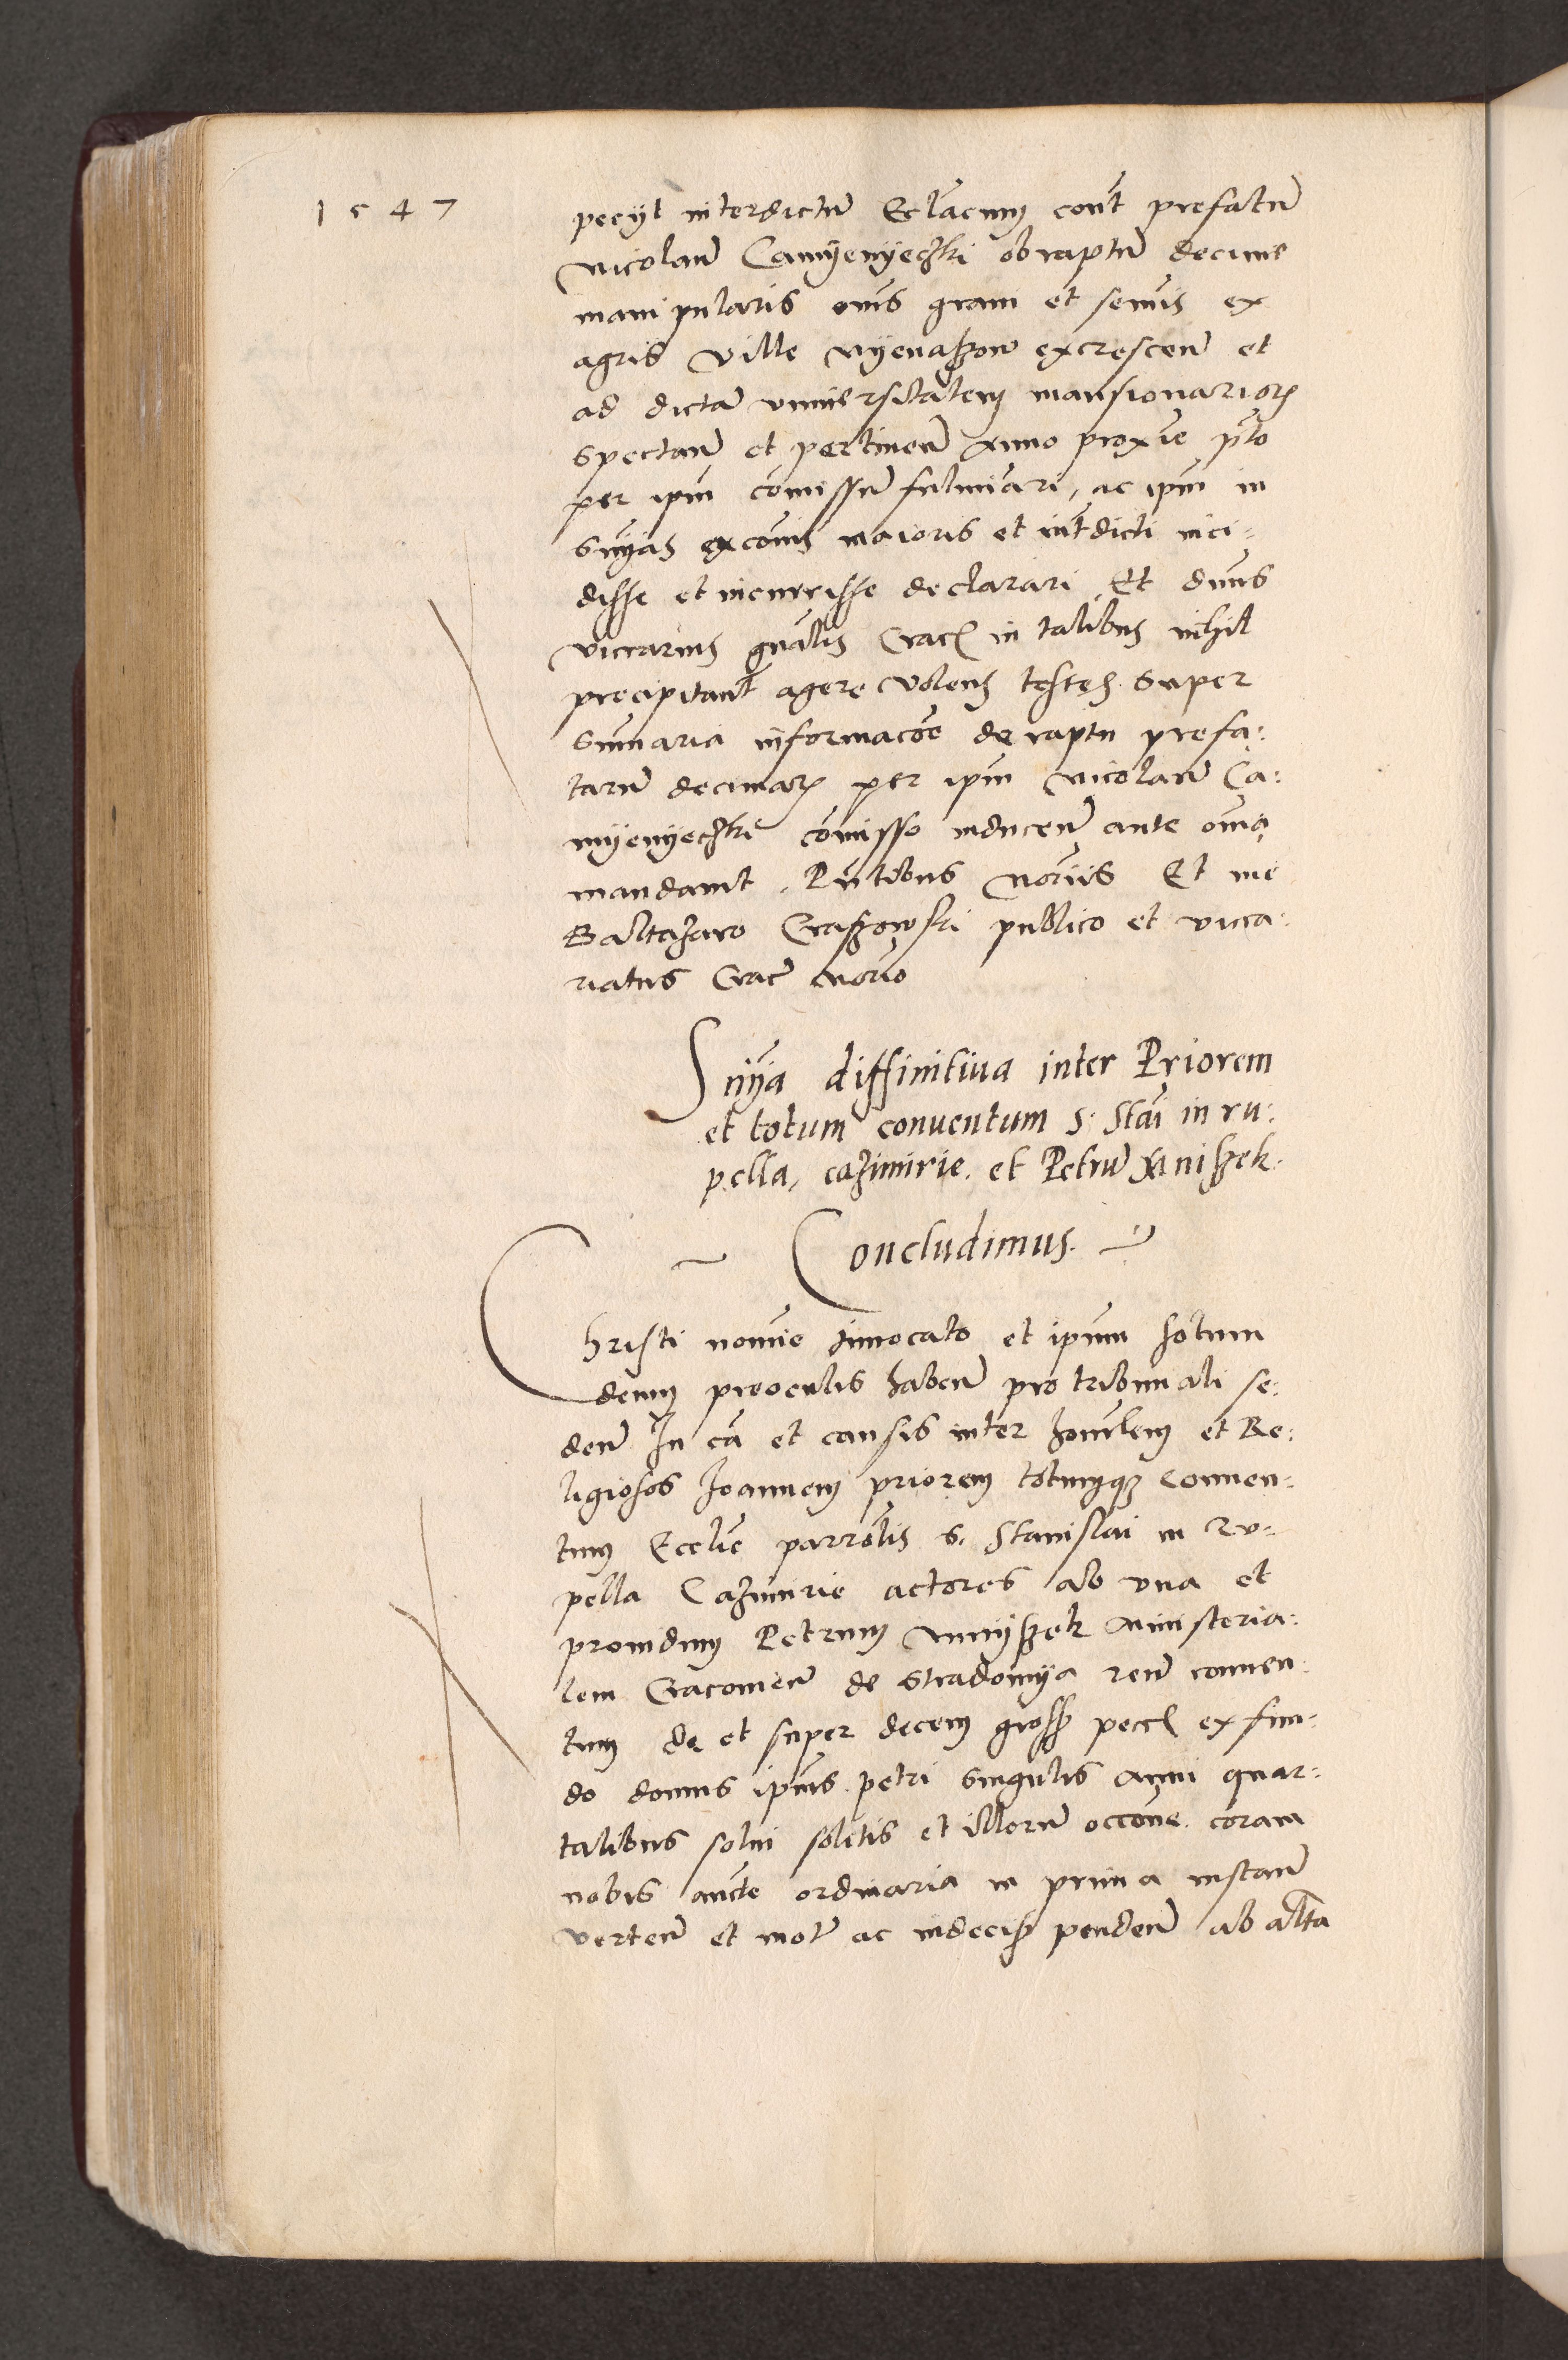 1547
pecijt interdictū Ecl̄acum cont̄ prefatū
Nicolaū Camyenyeczki ob raptū decime
manipularis om̄is grani et semīs ex
agris ville Nyenaszow excrescen̄ et
ad dictā vniuersitatem mansionarioꝝ
spectan̄ et pertinen̄ Anno proxīe p̄to
per ip̄m cōmissū fulmīari, ac ip̄m in
sn̄ias excōnis maioris et int̄dicti inci-
disse et incurrisse declarari Et dn̄us
vicarius gn̄alis Crac̄ in talibus nihil
precipitant̄ agere volens testes super
sum̄aria informacōe de raptu prefa:
tarū decimaꝝ per ip̄m Nicolaū Ca:
myenyeczki cōmisso inducen̄ ante om̄ia
mandauit. Pn̄tibus Nor̄iis Et me
Baltazaro Craszowski publico et vica:
riatus Crac̄ Nor̄io
Sn̄ia diffinitiua inter Priorem
et totum conuentum S: Stai in ru:
pella, cazimirie. et Petrū Mniszek.
Concludimus.
Christi nomīe inuocato et ip̄um solum
deum preoculis haben̄ pro tribunali se:
den̄ In cā et causis inter honīlem et Re:
ligiosos Joannem priorem totumqꝫ Conuen:
tum Eccl̄ie parrōlis S. Stanislai in Ru:
pella Cazimirie actores ab vna et
prouidum Petrum Mnyszek Ministeria:
lem Cracouien̄ de Stradomya reū conuen:
tum de et super decem gross pecc̄ ex fun:
do domus ip̄ius petri singulis anni quar:
talibus solui solitis et illorū occōne. coram
nobis aucte ordinaria in prima instan̄
verten̄ et mot̄ ac indecis̄ penden̄ ab alt̄a